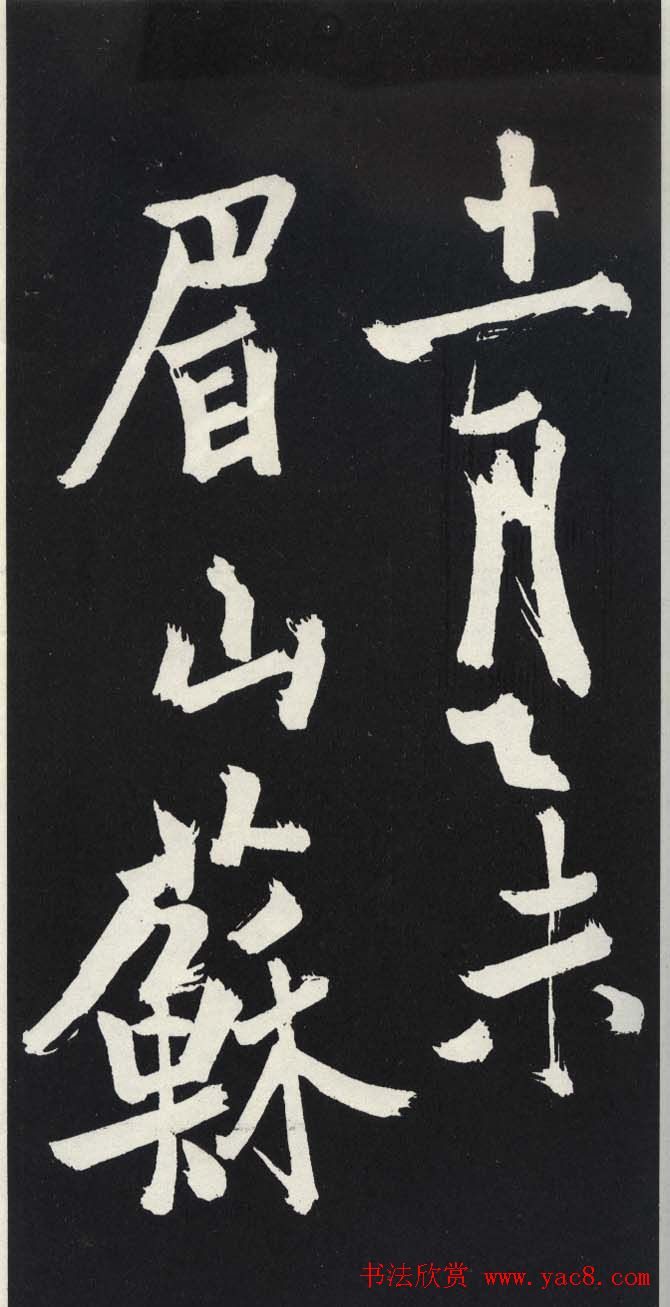 十一月乙未
眉山蘇
书法欣赏 www.yac8.com